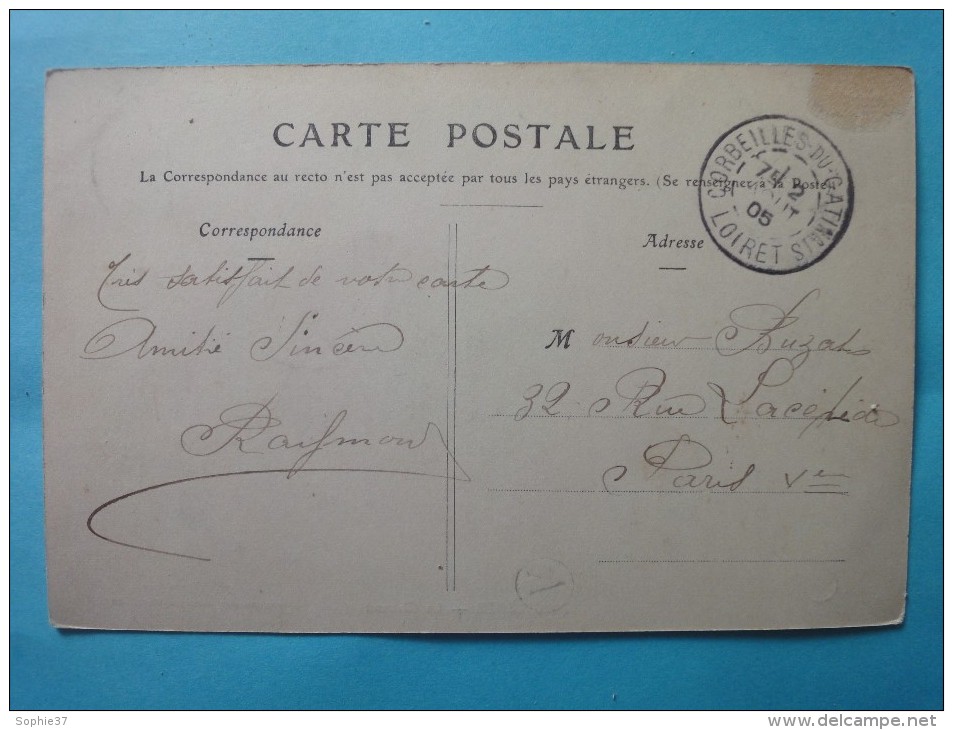 CARTE POSTALE
La Correspondance au recto n'est pas acceptée par tous les pays étrangers. (Se renseigner à la Poste)
CORBEILLES-DU-GATINAIS
LOIRET
05
Correspondance
Adresse
Très satisfait de votre carte
Amitié Sincère
Monsieur
32 Rue Lacépède
Paris Ve
Sophie37
delcampe.net